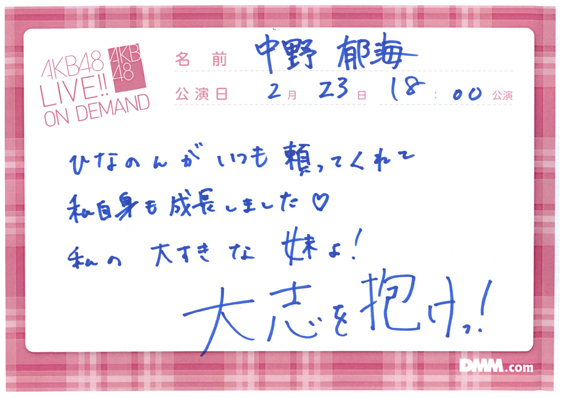 AKB48
LIVE!!
ON DEMAND
AKB
48
名前 中野 郁海
公演日 2月 23日 18:00 公演
ひなのんがいつも頼ってくれて
私自身も成長しました♡
私の大すきな妹よ!
大志を抱けっ!
DMM.com